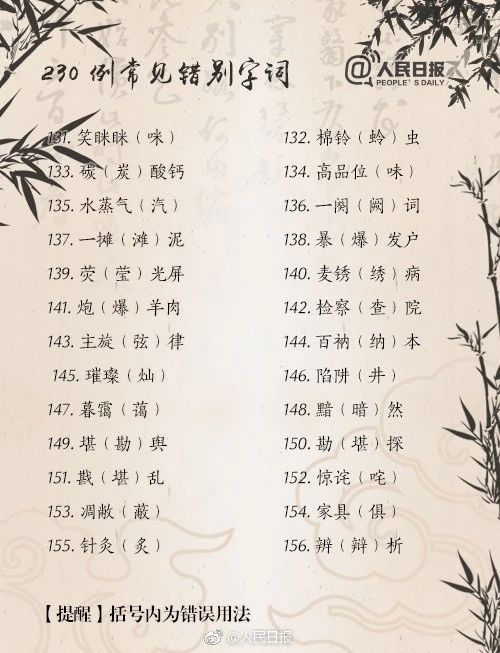 230 例常见错别字词
@人民日报
PEOPLE'S DAILY
131. 笑眯眯（咪）
132. 棉铃（蛉）虫
133. 碳（炭）酸钙
134. 高品位（味）
135. 水蒸气（汽）
136. 一阕（阙）词
137. 一摊（滩）泥
138. 暴（爆）发户
139. 荧（莹）光屏
140. 麦锈（绣）病
141. 炮（爆）羊肉
142. 检察（查）院
143. 主旋（弦）律
144. 百衲（纳）本
145. 璀璨（灿）
146. 陷阱（井）
147. 暮霭（蔼）
148. 黯（暗）然
149. 堪（勘）舆
150. 勘（堪）探
151. 戡（堪）乱
152. 惊诧（咤）
153. 凋敝（蔽）
154. 家具（俱）
155. 针灸（炙）
156. 辨（辩）析
【提醒】括号内为错误用法
@人民日报